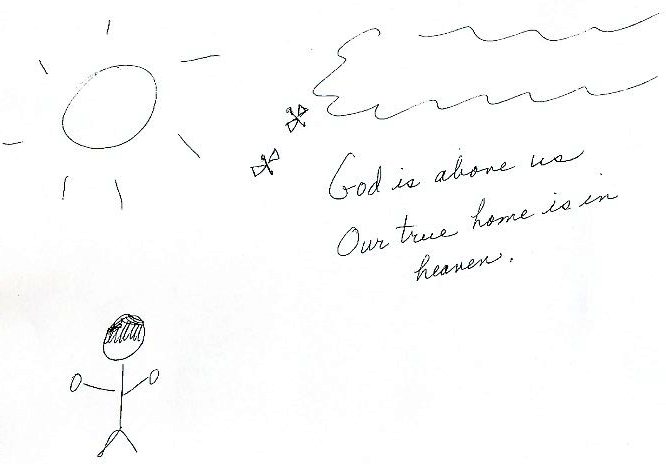 God is above us
Our true home is in
heaven.